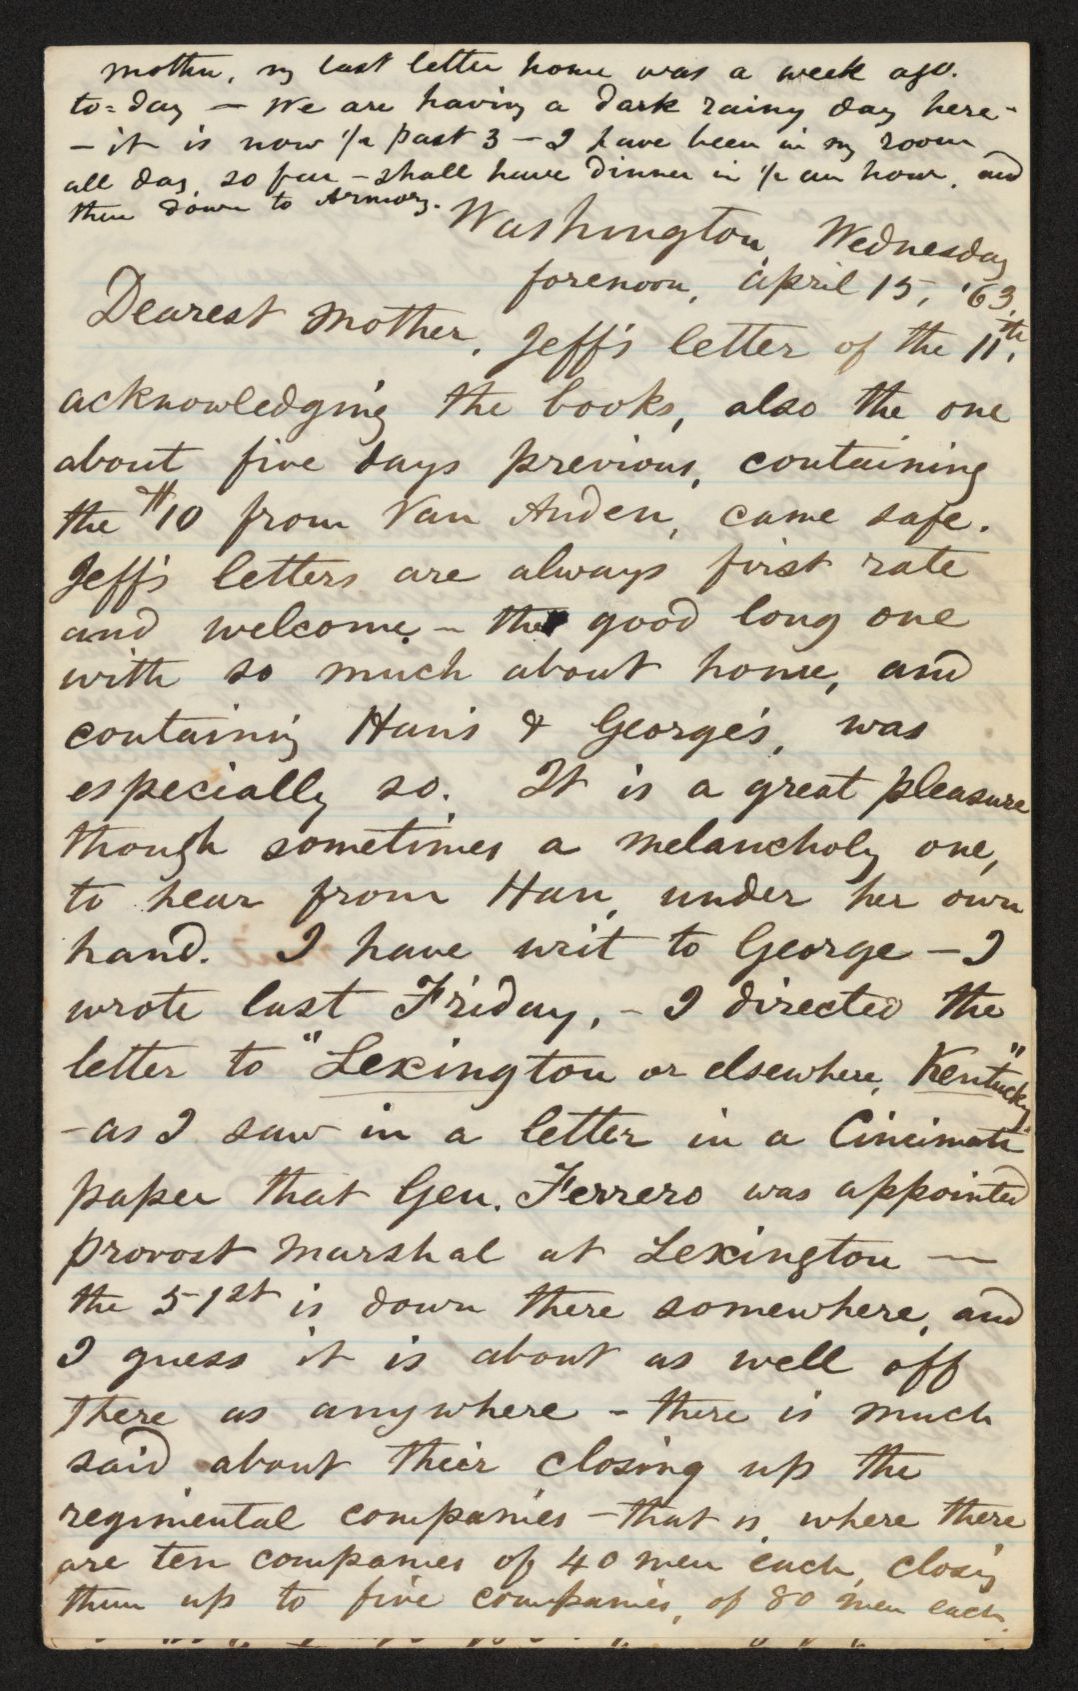 mother, my last letter home was a week ago
to=day — We are having a dark rainy day here —
— it is now ½ past 3 — I have been in my room
all day, so far — shall have dinner in ½ an hour, and
then down to Armory.
Washington, Wednesday
forenoon, April 15, '63.
Dearest Mother,
Jeff's letter of the 11th,
acknowledging the books, also the one
about five days previous, containing
the $10 from Van Anden, came safe.
Jeff's letters are always first rate
and welcome — the good long one
with so much about home, and
containing Han's & George's, was
especially so. It is a great pleasure
though sometimes a melancholy one,
to hear from Han, under her own
hand. I have writ to George — I
wrote last Friday, — I directed the
letter to "Lexington or elsewhere, Kentucky"
— as I saw in a letter in a Cincinnati
paper that Gen. Ferrero was appointed
provost marshal at Lexington —
the 51st is down there somewhere, and
I guess it is about as well off
there as anywhere — there is much
said about their closing up the
regimental companies — that is, where there
are ten companies of 40 men each, closing
them up to five companies, of 80 men each.